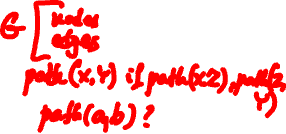 G [ nodes
edges
path(x,Y) if path(xZ), path(z,
Y)
path(a,b)?